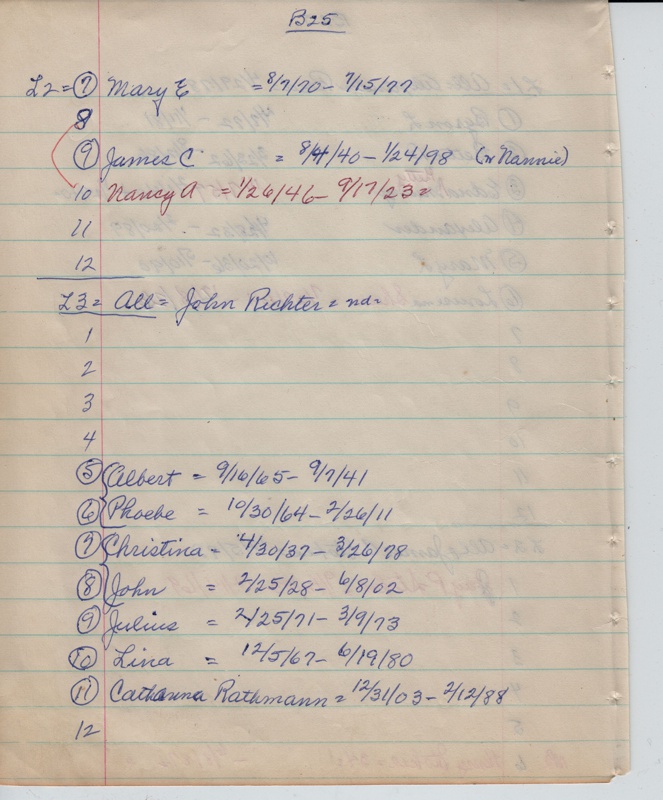 B25
L2 = 7 Mary E = 8/7/70 - 7/15/77
8
9 James C = 8/4/40 - 1/24/98 (or Nannie)
10 Nancy A = 1/26/46 - 9/17/23 =
11
12
L3 = All = John Richter = nd =
1
2
3
4
5 Albert = 9/16/65 - 9/7/41
6 Phoebe = 10/30/64 - 2/26/11
7 Christina = 4/30/37 - 3/26/78
8 John = 2/25/28 - 6/8/02
9 Julius = 2/25/71 - 3/9/73
10 Lina = 12/5/67 - 6/19/80
11 Catharina Rathmann = 12/31/03 - 2/12/88
12